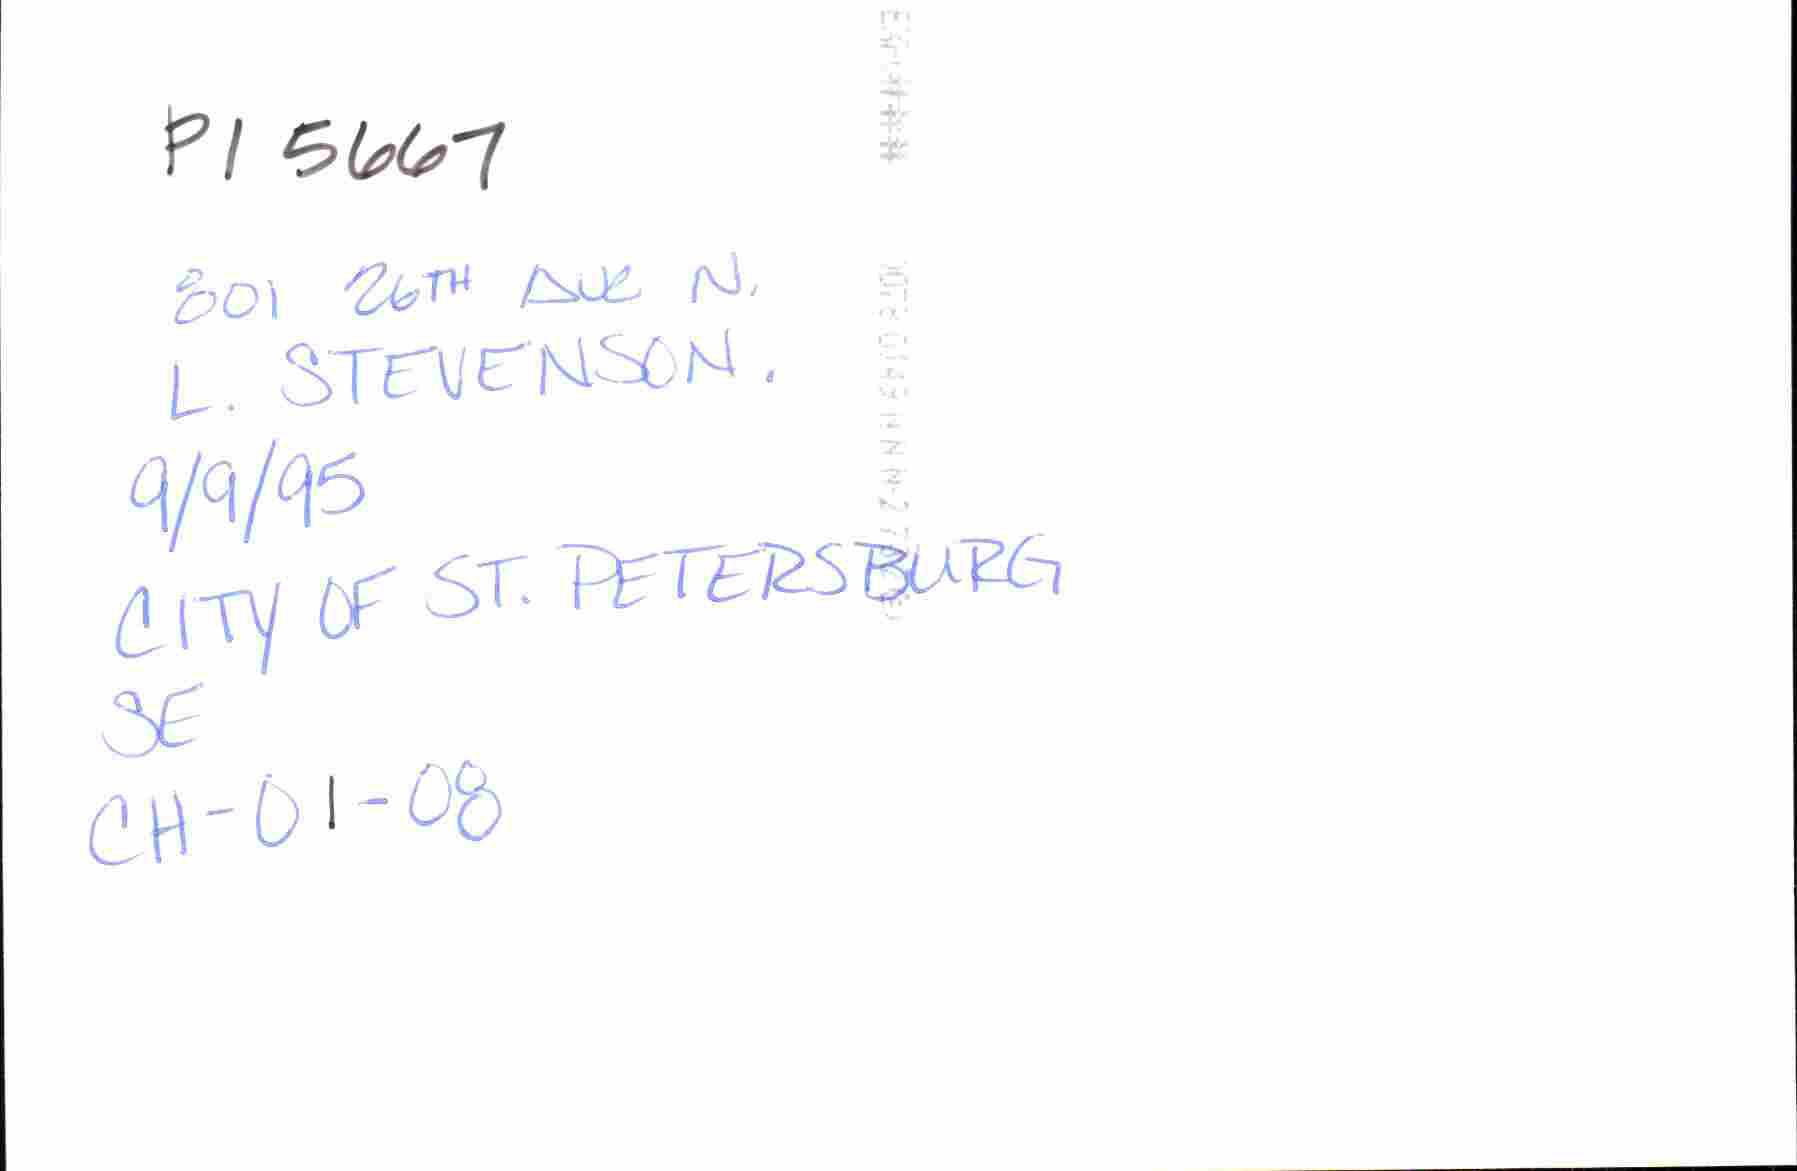 PI 5667
801 26TH AVE N.
L. STEVENSON.
9/9/95
CITY OF ST. PETERSBURG
SE
CH-01-08